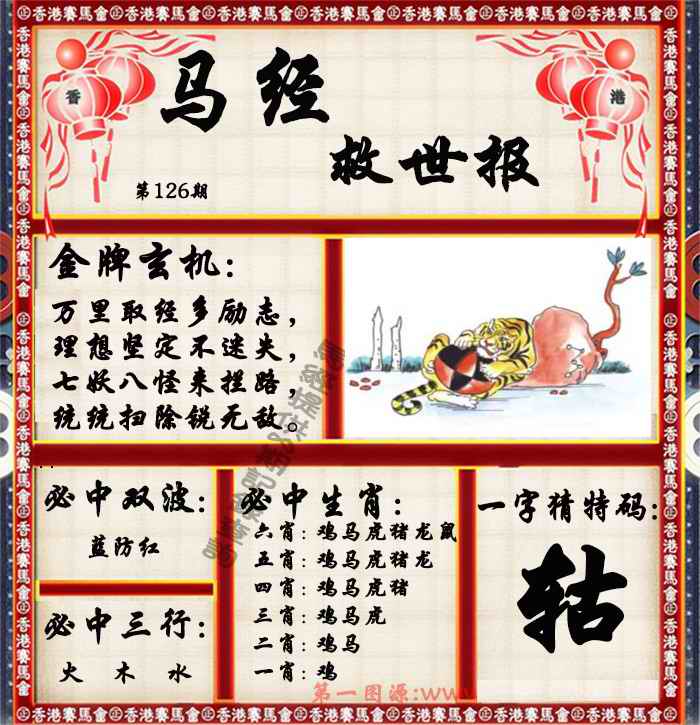 香港賽馬會
香
港
马经
救世报
第126期
金牌玄机：
万里取经多励志，
理想坚定不迷失，
七妖八怪来拦路，
统统扫除锐无敌。
必中双波：
蓝防红
必中三行：
火 木 水
必中生肖：
六肖：鸡马虎猪龙鼠
五肖：鸡马虎猪龙
四肖：鸡马虎猪
三肖：鸡马虎
二肖：鸡马
一肖：鸡
一字猜特码：
轱
第一图源:www